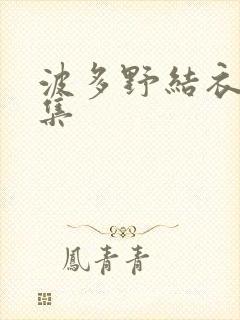 波多野結衣
集
鳳青青